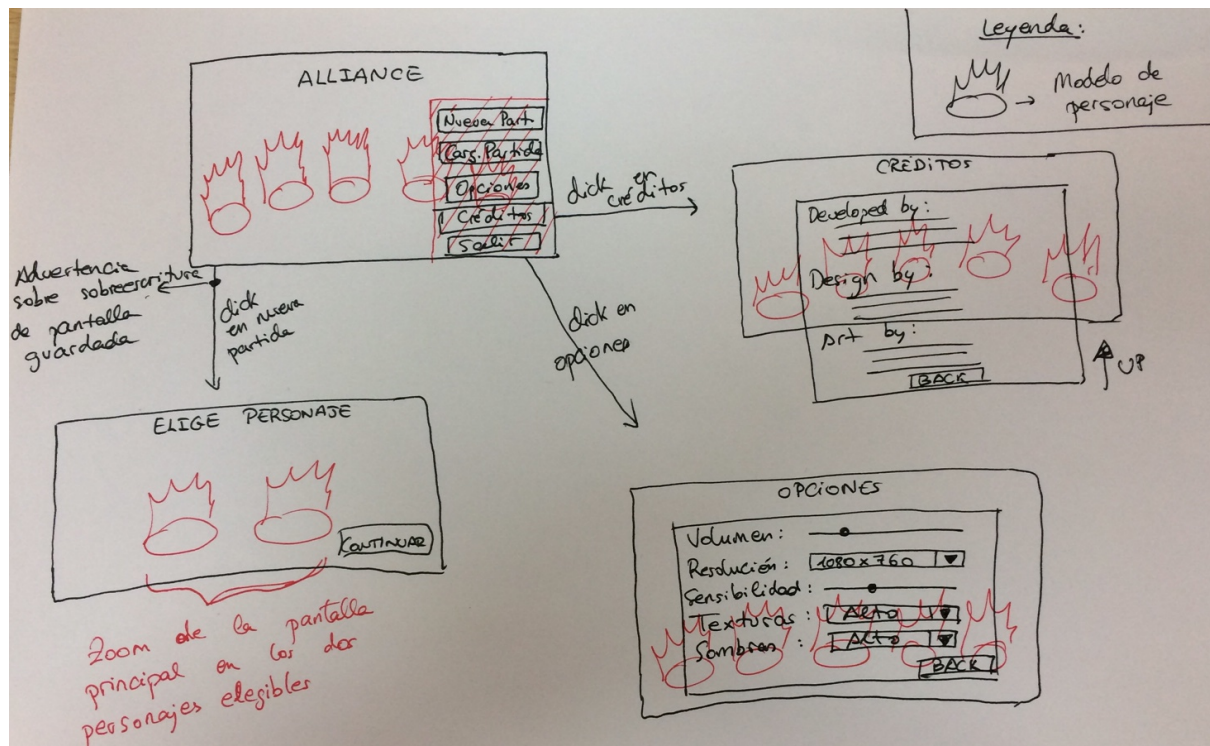 Leyenda:
Modelo de
personaje
ALLIANCE
Nueva Part.
Carg. Partida
Opciones
Créditos
Salir
click en
créditos
CRÉDITOS
Developed by:
Design by:
Art by:
BACK
UP
Advertencia
sobre sobreescritura
de pantalla
guardada
click
en nueva
partida
click en
opciones
ELIGE PERSONAJE
CONTINUAR
Zoom de la pantalla
principal en los dos
personajes elegibles
OPCIONES
Volumen:
Resolución: 1080x760
Sensibilidad:
Texturas: Alto
Sombras: Alto
BACK